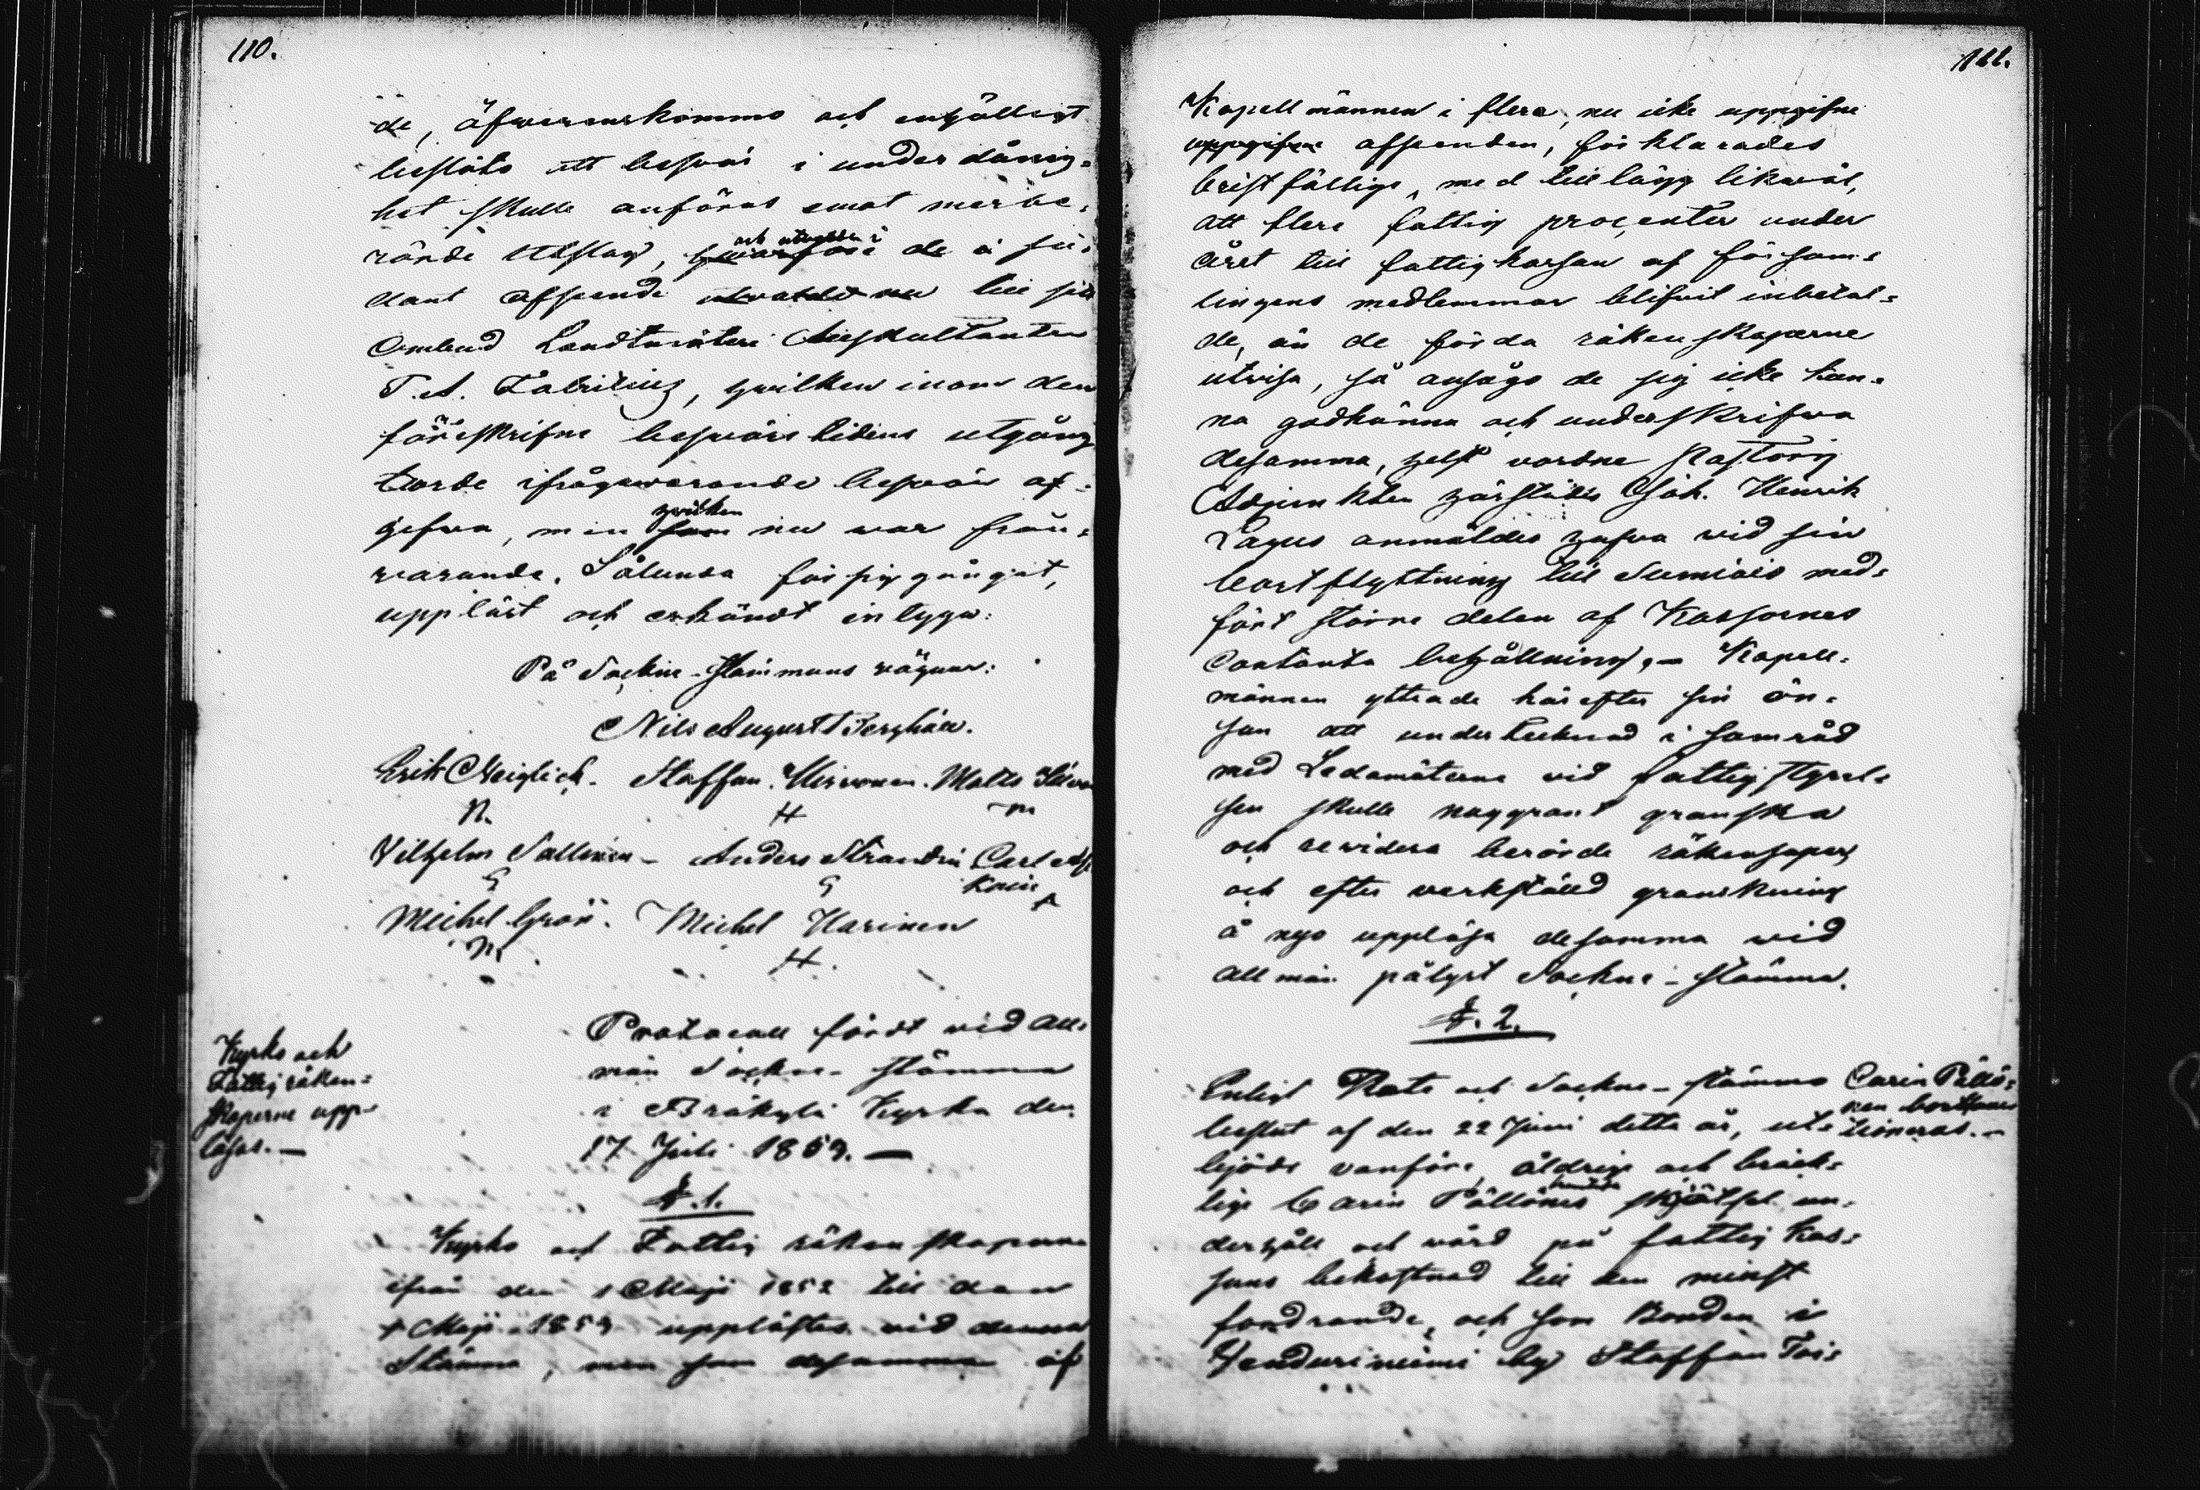 110.
de, äfwerenskommo och enhälligt
beslöto att besvär i underdånig-
het skulle anföras emot merbe-
rörde Utslag, hwarföre de i så-
och utsedde i
dant afseende till sin
Ombud Landtmäteri Auskultanten
T. A. Fabritius, hwilken inom den
föreskrifne besvärs tidens utgång
torde ifrågawarande besvär af-
hwilken
gifwa, men som nu war från-
warande. Sålunda försiggånget,
uppläst och erkändt intyga:
På Sockne-Stämmans vägnar:
Nils August Berghäll.
Erik Neiglick. Staffan Hirvonen. Matts
N. H m
Vilhelm Sallinen - Anders Strandin Carl
Michel Grön. Michel Harinen
H
Protocoll fördt vid all-
män Sockne-stämma
i Bräkylä Kyrka den
17 Juli 1859. —
Kyrko och
Fattig räken-
skaperne upp-
läsas. —
§. 1.
Kyrko och Fattig räkenskaperne
ifrån den 1 Maji 1852 till den
1 Maji 1859 upplästes vid denna
Stämma, men som desamma af
111.
Kapellmännen i flere, nu icke uppgifne
uppgifne afseenden, förklarades
bristfällige, med tillägg likwäl,
att flere fattig procenter under
året till fattigkassan af försam-
lingens medlemmar blifvit inbetal-
de, än de förda räkenskaperne
utvisa, så ansågo de sig icke kun-
na godkänna och underskrifwa
desamma, helst vordne Pastors
Adjunkten härstädes Joh. Henrik
Lagus anmäldes hafwa vid sin
bortflyttning till Sumiais med-
fört större delen af Kassornes
Contanta behållning, — Kapell-
männen yttrade härefter sin ön-
san att undertecknad i samråd
med Ledamöterne vid fattigstyrel-
sen skulle noggrant granska
och revidera berörde räkenskaper
och efter verkställd granskning
å nyo uppläsa desamma wid
allmän pålyst Sockne-stämma.
§. 2.
Enligt Rote och Sockne-stämmo
beslut af den 22 Juni detta år, ut-
bjöds vanföre, åldrige och bräck-
lige Carin Pällönens skötsel un-
derhåll och wård på fattig Kas-
sans bekostnad till den minst
fordrande, och som Bonden i
Henduriniemi by Staffan Toi-
Carin Pällö-
nen
tioneras. —